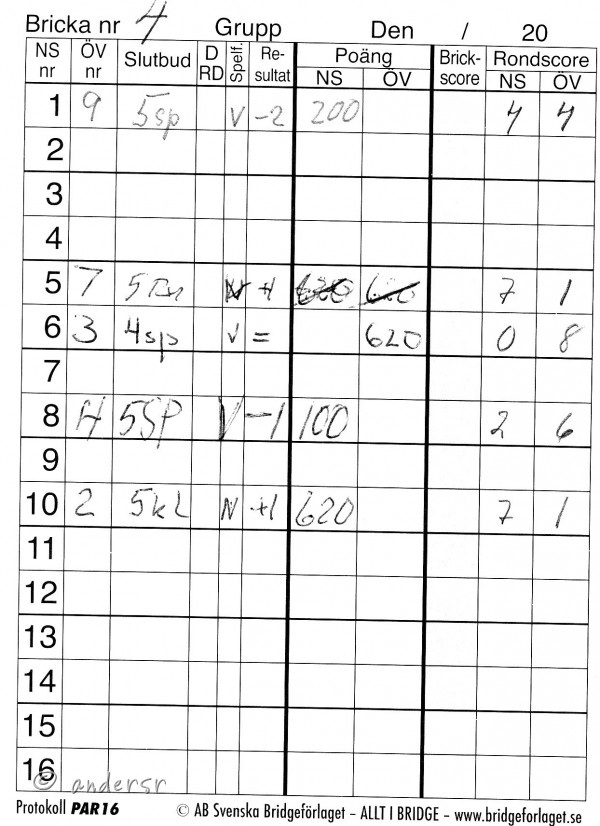 Bricka nr 4 Grupp Den / 20
NS nr ÖV nr Slutbud D RD Spelf. Re- sultat Poäng NS ÖV Brick- score Rondscore NS ÖV
1 9 5sp V -2 200 4 4
2
3
4
5 7 N +1 620 620 7 1
6 3 4sp V = 620 0 8
7
8 5SP V -1 100 2 6
9
10 2 5kl N +1 620 7 1
11
12
13
14
15
16
© andersr
Protokoll PAR16 © AB Svenska Bridgeförlaget – ALLT I BRIDGE – www.bridgeforlaget.se